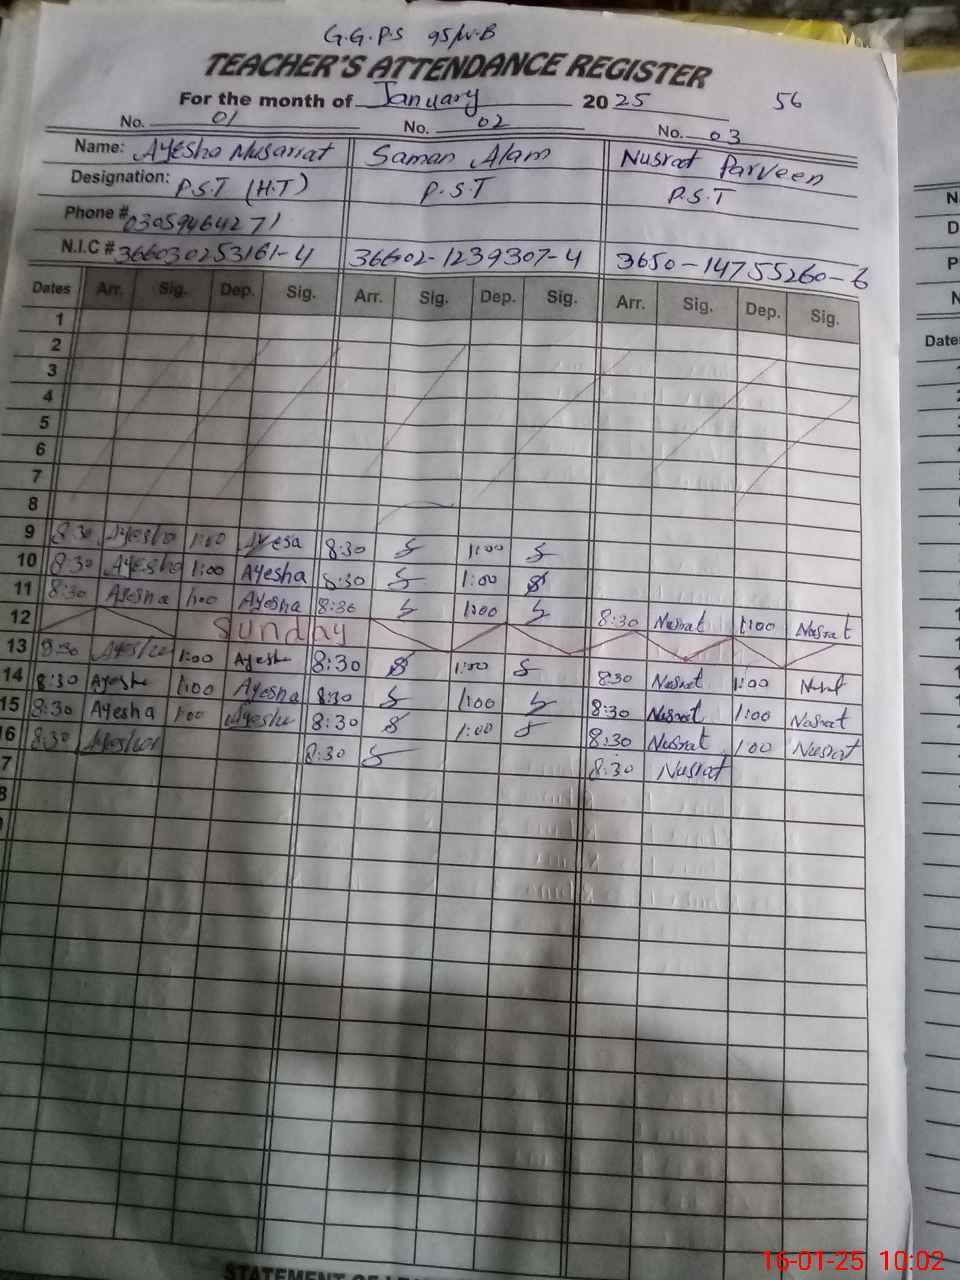 G.G.P.S 95/W.B
TEACHER'S ATTENDANCE REGISTER
For the month of January 2025 56
No. 01 No. 02 No. 03
Name: Ayesha Musarrat Saman Alam Nusrat Parveen
Designation: P.S.T (H.T) P.S.T P.S.T
Phone # 03059464271
N.I.C # 366030253161-4 36602-1239307-4 3650-14755260-6
Dates Arr. Sig. Dep. Sig. Arr. Sig. Dep. Sig. Arr. Sig. Dep. Sig.
1
2
3
4
5
6
7
8
9 8:30 Ayesha 1:00 Ayesa 8:30 S 1:00 S
10 8:30 Ayesha 1:00 Ayesha 8:30 S 1:00 S
11 8:30 Ayesha 1:00 Ayesha 8:30 S 1:00 S 8:30 Nusrat 1:00 Nusrat
12 Sunday
13 8:30 Ayesha 1:00 Ayesha 8:30 S 1:00 S 8:30 Nusrat 1:00 Nusrat
14 8:30 Ayesha 1:00 Ayesha 8:30 S 1:00 S 8:30 Nusrat 1:00 Nusrat
15 8:30 Ayesha 1:00 Ayesha 8:30 S 1:00 S 8:30 Nusrat 1:00 Nusrat
16 8:30 Ayesha 8:30 S 8:30 Nusrat
7
8
Date
16-01-25 10:02